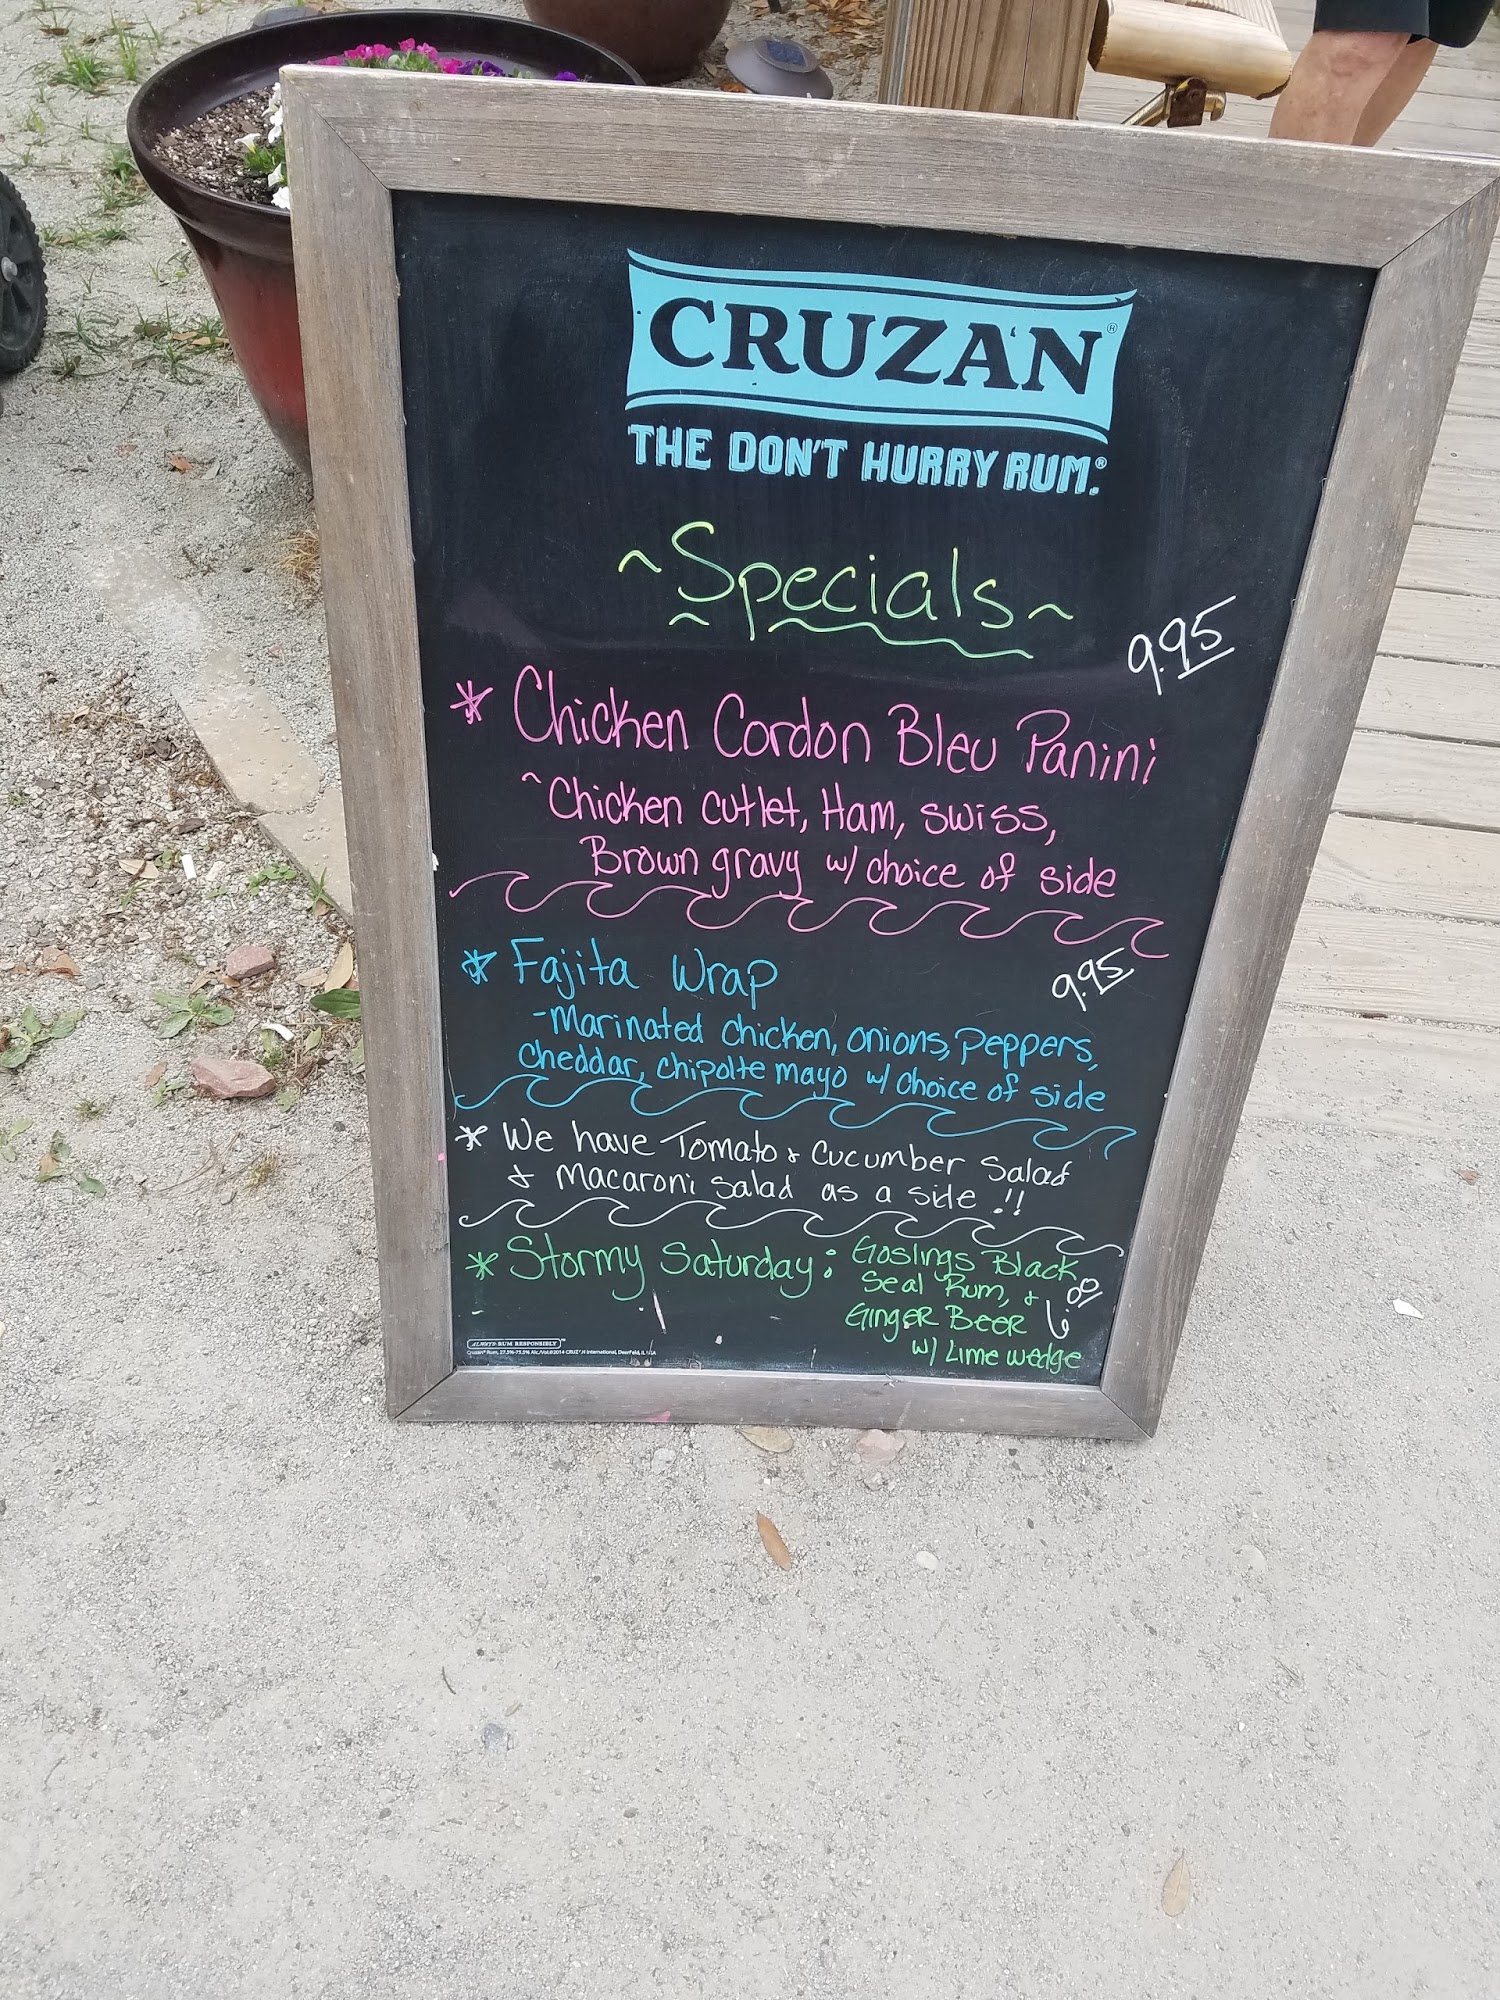 CRUZAN®
THE DON'T HURRY RUM.®
~Specials~
9.95
* Chicken Cordon Bleu Panini
~Chicken cutlet, Ham, swiss,
Brown gravy w/ choice of side
* Fajita Wrap
9.95
-Marinated chicken, onions, peppers,
cheddar, chipolte mayo w/ choice of side
* We have Tomato & Cucumber Salad
& Macaroni salad as a side !!
* Stormy Saturday: Goslings Black
Seal Rum, &
Ginger Beer
w/ Lime wedge
ALWAYS RUM RESPONSIBLY™